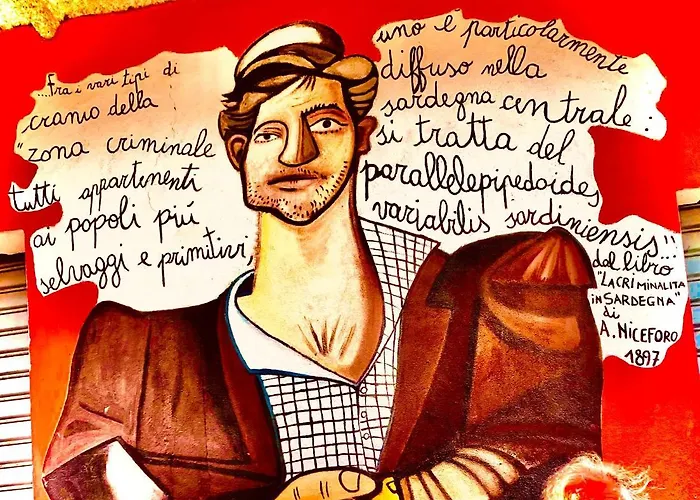 ...Fra i vari tipi di
cranio della
"zona criminale
tutti appartenenti
ai popoli più
selvaggi e primitivi,
uno è particolarmente
diffuso nella
sardegna centrale:
si tratta del
parallelepipedoides
variabilis sardiniensis!!
dal libro
"LA CRIMINALITÀ
in SARDEGNA"
di
A. NICEFORO
1897